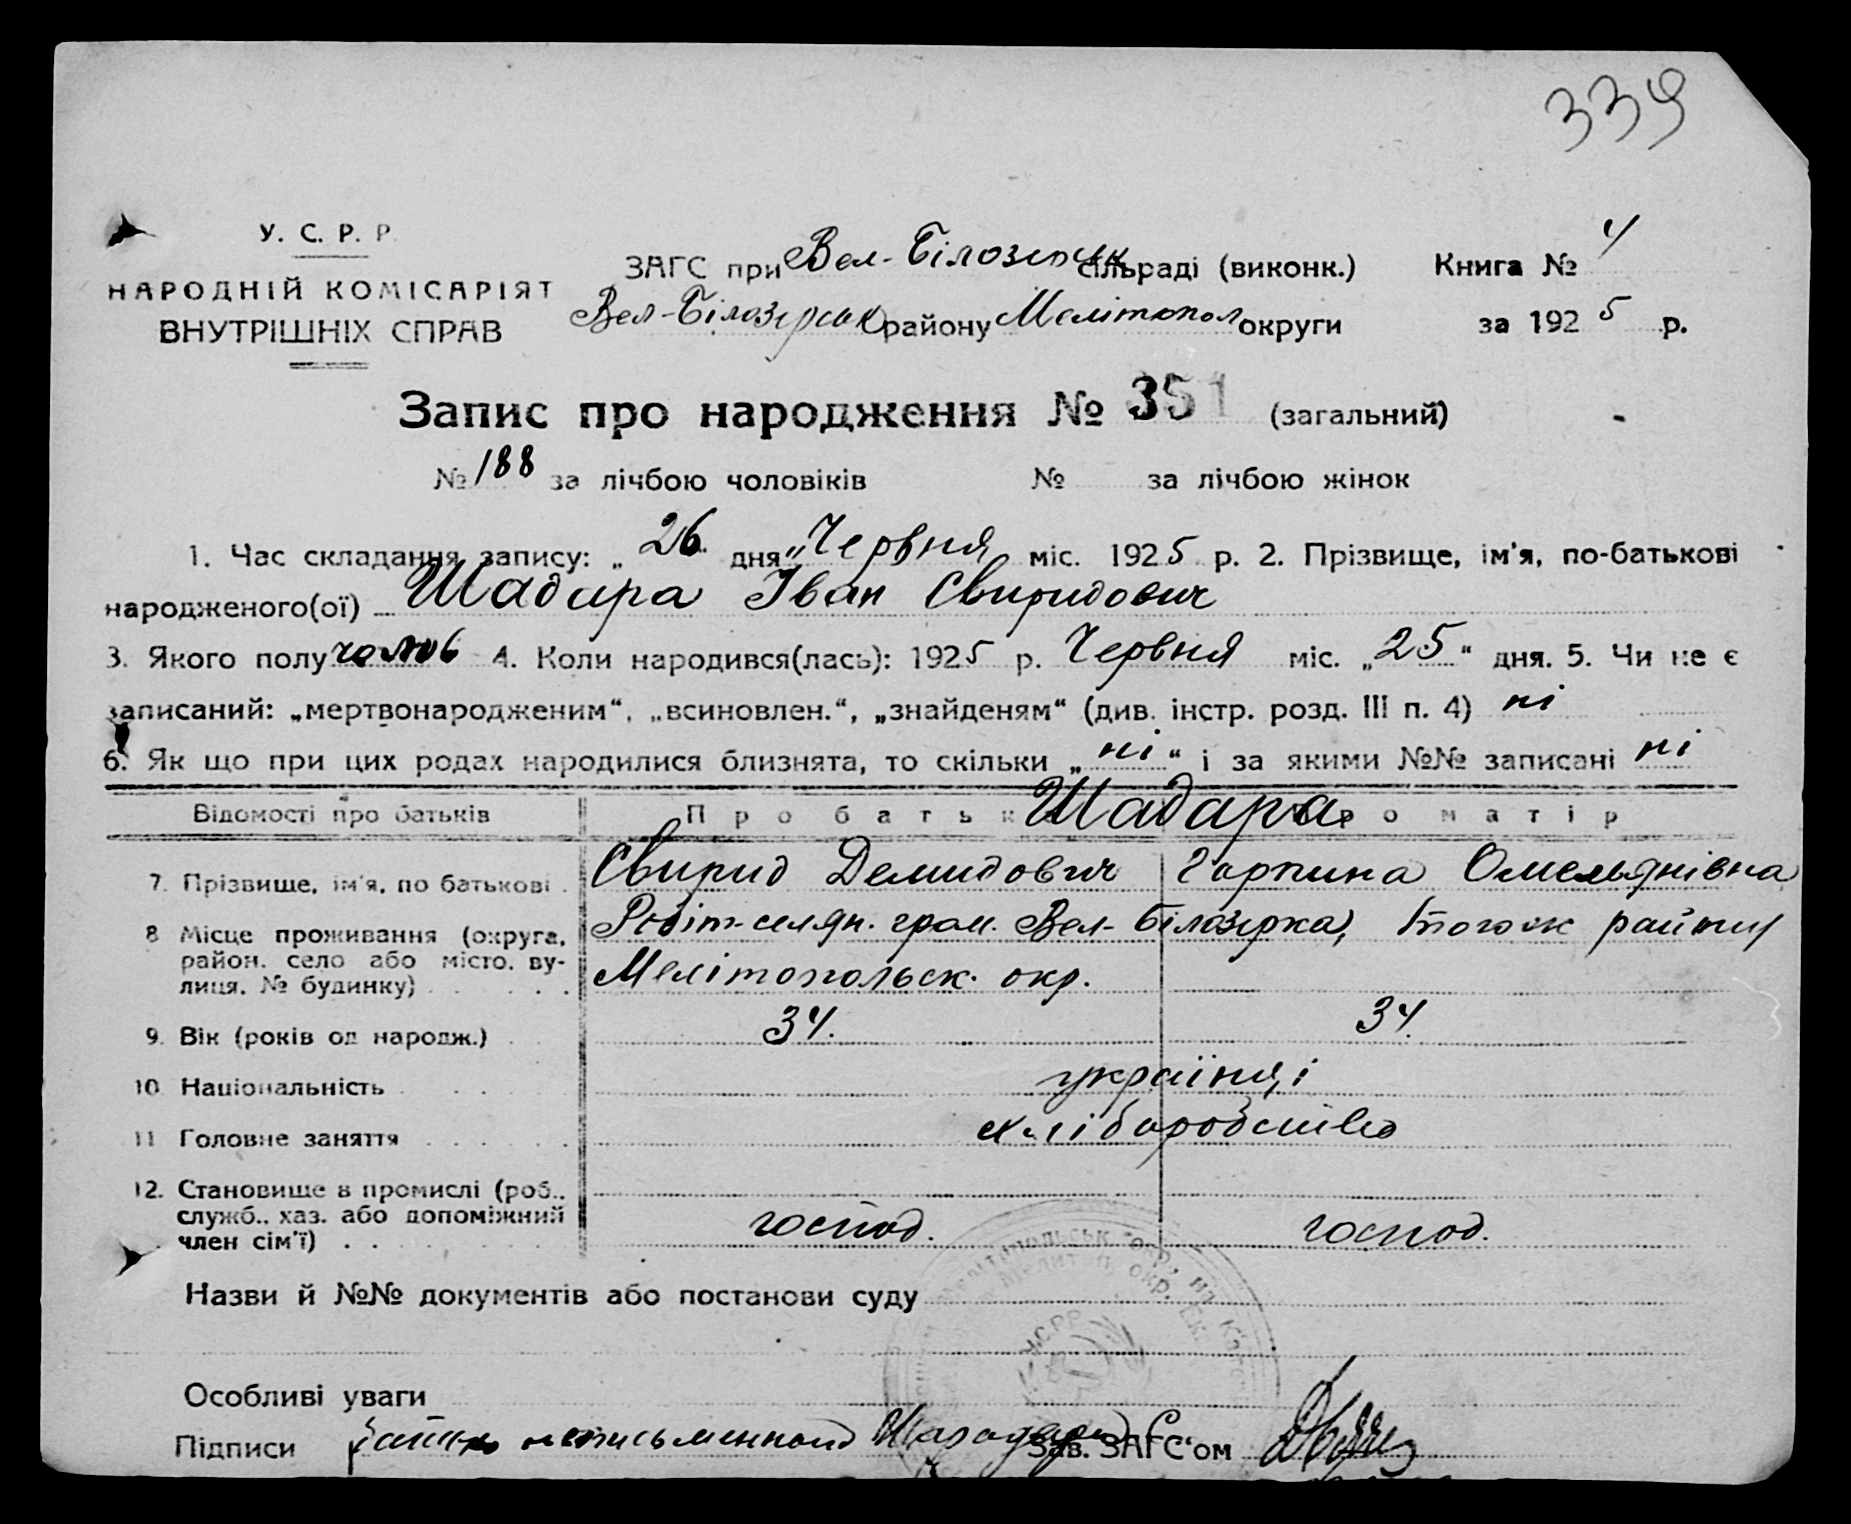 339
У. С. Р. Р.
НАРОДНІЙ КОМІСАРІЯТ
ВНУТРІШНІХ СПРАВ
ЗАГС при Вел-Білозірськ сільраді (виконк.) Книга № 4
Вел-Білозірськ району Мелітопол округи за 1925 р.
Запис про народження № 351 (загальний)
№ 188 за лічбою чоловіків № за лічбою жінок
1. Час складання запису: „26" дня „Червня міс. 1925 р. 2. Прізвище, ім'я, по-батькові
народженого(ої) Шадура Іван Свиридович
3. Якого полу чолов 4. Коли народився(лась): 1925 р. Червня міс. „25" дня. 5. Чи не є
записаний: „мертвонародженим", „всиновлен.", „знайденям" (див. інстр. розд. III п. 4) ні
6. Як що при цих родах народилися близнята, то скільки „ні" і за якими №№ записані ні
Відомості про батьків Про батьк Шадура о матір
7. Прізвище, ім'я, по батькові Свирид Демидович Гарпина Омельянівна
8 Місце проживання (округа, Робіт-селян. гром. Вел-Білозірка, того ж району
район, село або місто, ву-
лиця, № будинку) Мелітопольськ. окр.
9. Вік (років од народж.) 34. 34.
10 Національність українці
11 Головне заняття хліборобство
12. Становище в промислі (роб.,
служб., хаз. або допоміжний господ. господ.
член сім'ї)
Назви й №№ документів або постанови суду
Особливі уваги
Підписи неписьменного Зав. ЗАГС'ом